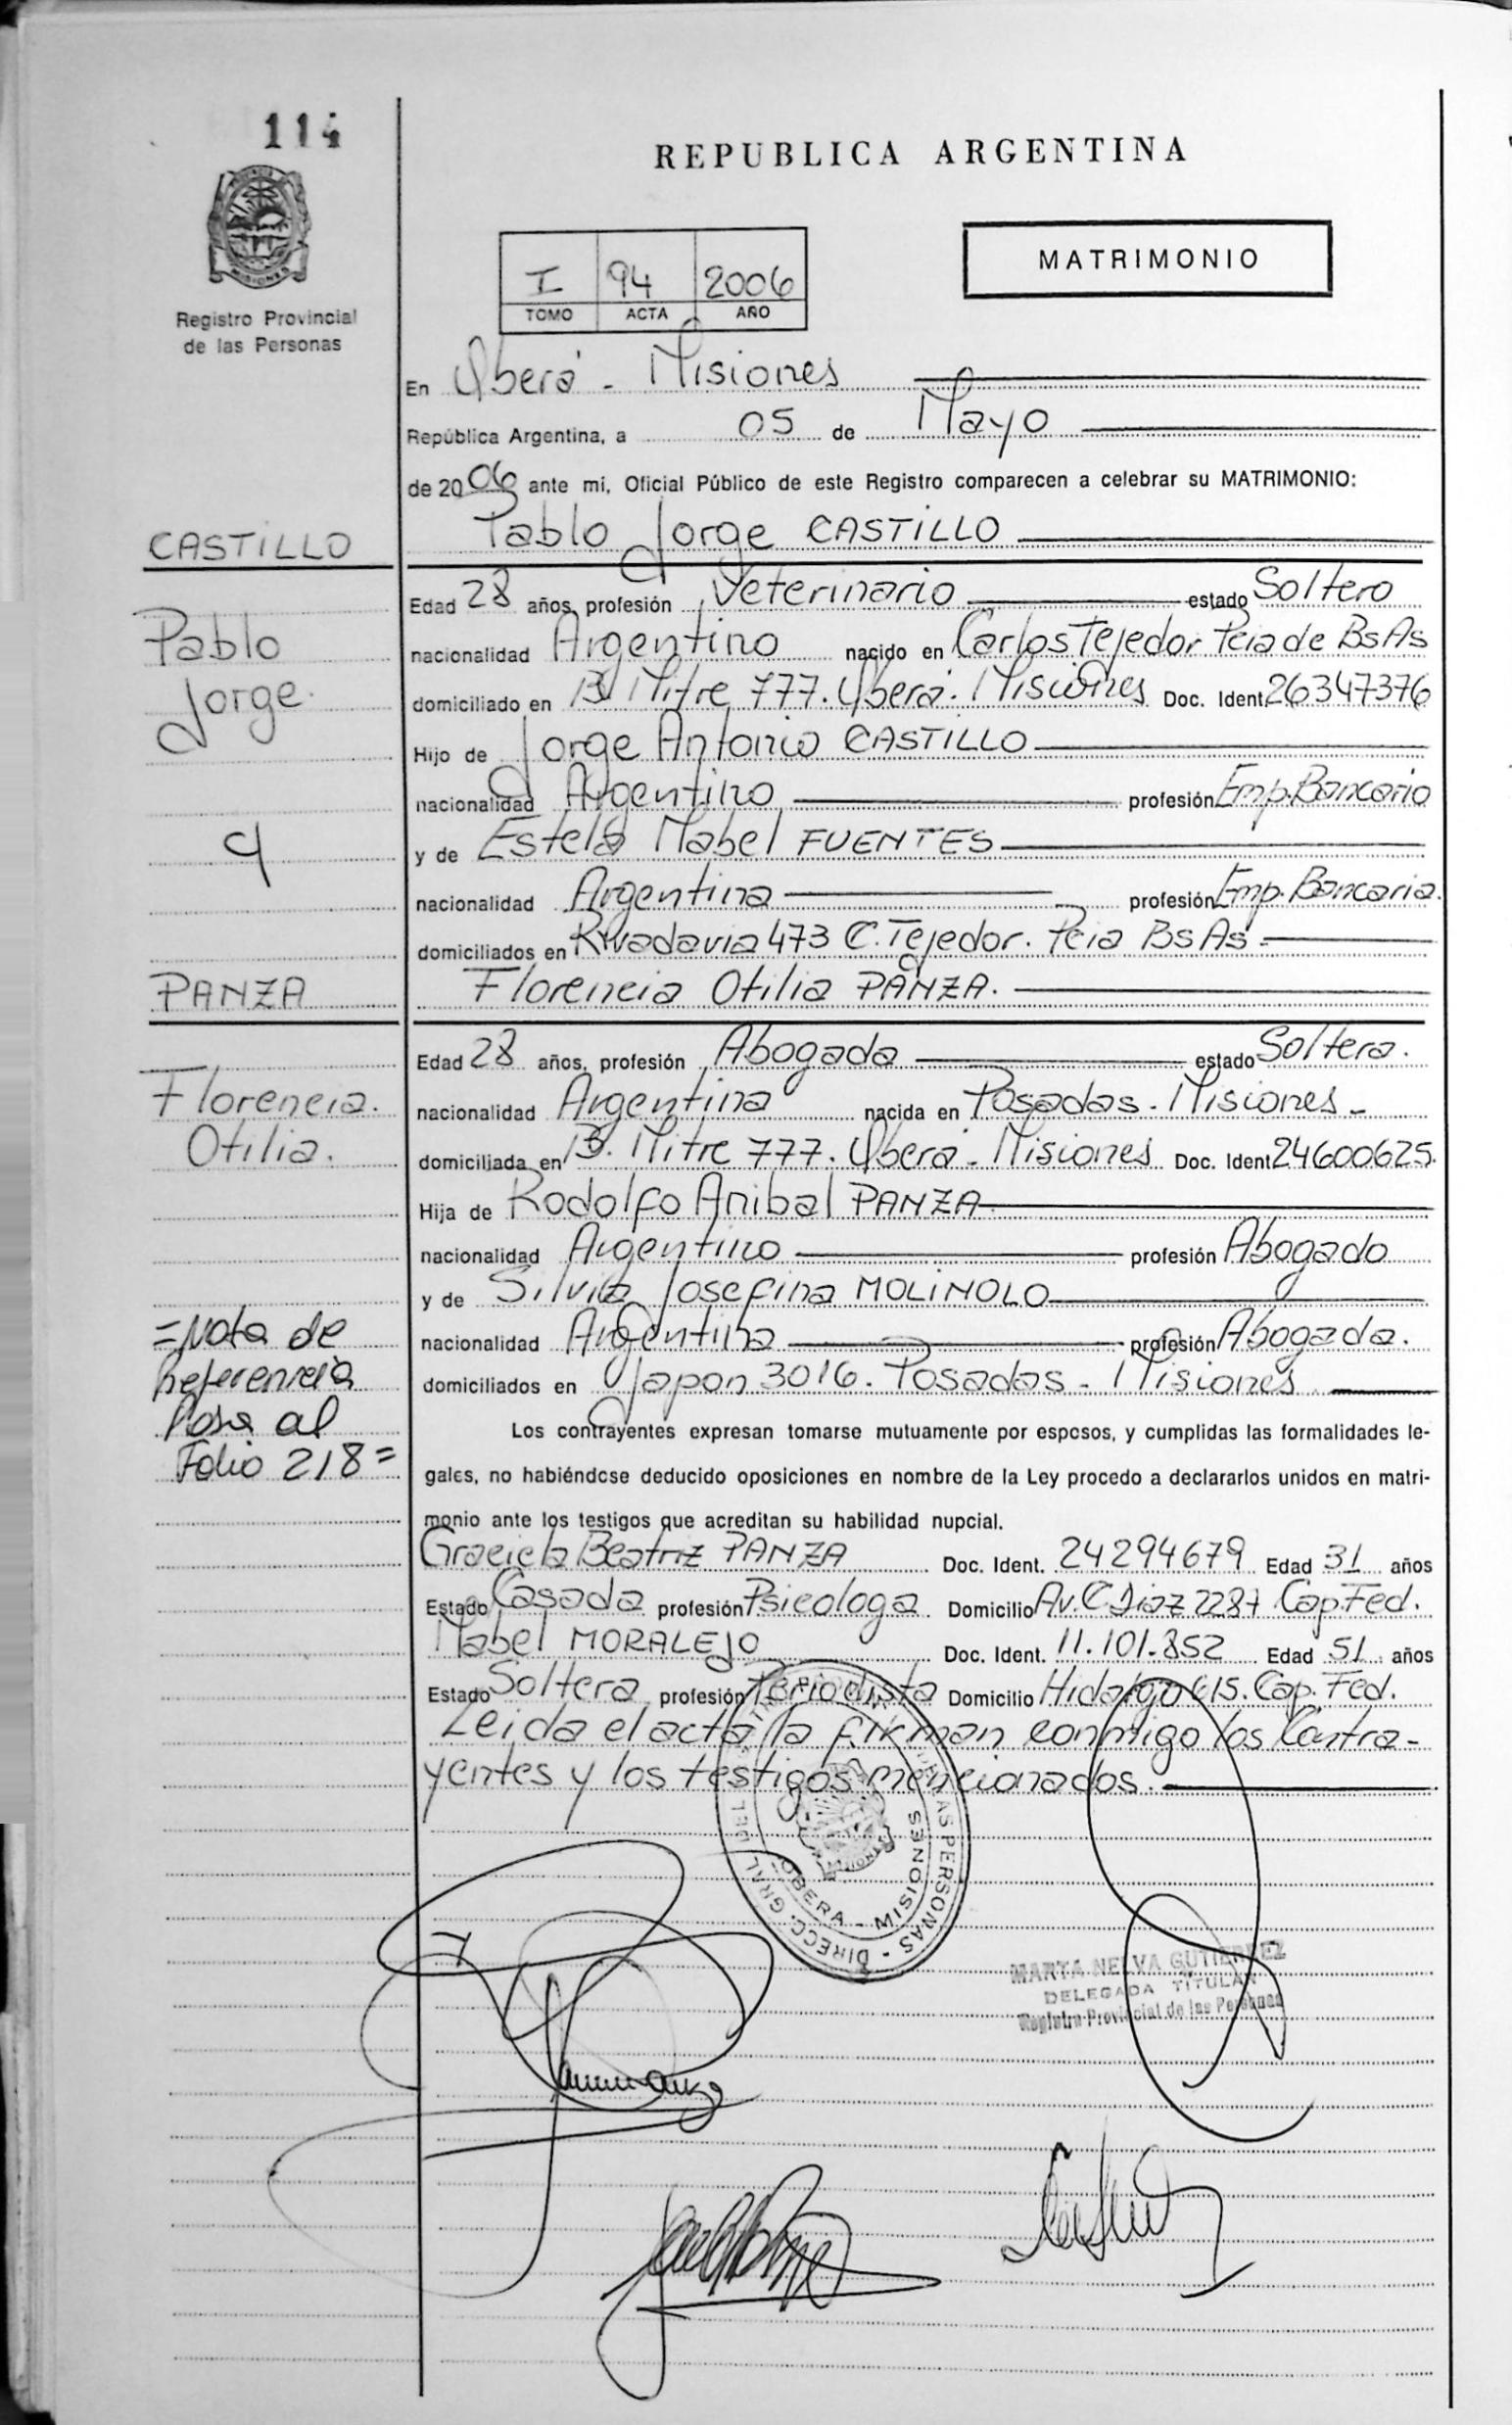 114
REPUBLICA ARGENTINA
MATRIMONIO
I 94 2006
TOMO ACTA AÑO
Registro Provincial
de las Personas
En Oberá - Misiones
República Argentina, a 05 de Mayo
de 2006 ante mi, Oficial Público de este Registro comparecen a celebrar su MATRIMONIO:
CASTILLO
Pablo Jorge CASTILLO
Pablo
Jorge.
Edad 28 años, profesión Veterinario estado Soltero
nacionalidad Argentino nacido en Carlos Tejedor Pcia de Bs As
domiciliado en B. Mitre 777. Oberá. Misiones Doc. Ident. 26347376
Hijo de Jorge Antonio CASTILLO
nacionalidad Argentino profesión Emp. Bancario
y
y de Estela Mabel FUENTES
nacionalidad Argentina profesión Emp. Bancaria.
domiciliados en Rivadavia 473 C. Tejedor. Pcia Bs As -
PANZA
Florencia Otilia PANZA.
Florencia.
Otilia.
Edad 28 años, profesión Abogada estado Soltera.
nacionalidad Argentina nacida en Posadas - Misiones -
domiciliada en B. Mitre 777. Oberá - Misiones Doc. Ident 24600625.
Hija de Rodolfo Anibal PANZA
nacionalidad Argentino profesión Abogado
y de Silvia Josefina MOLINOLO
nacionalidad Argentina profesión Abogada.
domiciliados en Japon 3016. Posadas - Misiones
= Nota de
Referencia
Pasa al
Folio 218 =
Los contrayentes expresan tomarse mutuamente por esposos, y cumplidas las formalidades le-
gales, no habiéndose deducido oposiciones en nombre de la Ley procedo a declararlos unidos en matri-
monio ante los testigos que acreditan su habilidad nupcial.
Graciela Beatriz PANZA Doc. Ident. 24294679 Edad 31 años
Estado Casada profesión Psicologa Domicilio Av. C Diaz 2287 Cap. Fed.
Mabel MORALEJO Doc. Ident. 11.101.852 Edad 51 años
Estado Soltera profesión Periodista Domicilio Hidalgo 615. Cap. Fed.
Leida el acta la firman conmigo los Contra-
yentes y los testigos mencionados.
DIRECC. GRAL. DEL LAS PERSONAS
OBERA - MISIONES
MARTA NELVA GUTIERREZ
DELEGADA TITULAR
Registro Provincial de las Personas